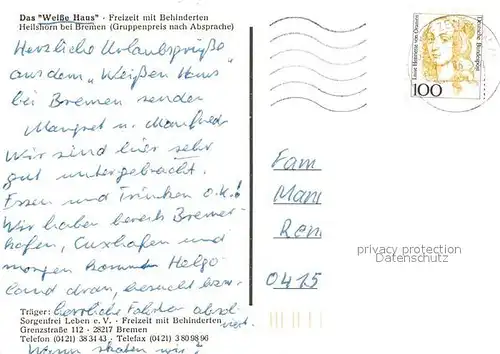 Das "Weiße Haus" · Freizeit mit Behinderten
Heilshorn bei Bremen (Gruppenpreis nach Absprache)
Herzliche Urlaubsgrüße
aus dem „Weißen Haus"
bei Bremen senden
Margret u. Manfred
Wir sind hier sehr
gut untergebracht.
Essen und Trinken o.k.!
Wir haben bereits Bremer-
hafen, Cuxhafen und
morgen kommt Helgo-
land dran, besucht bzw.
herrliche Fahrten absol-
viert.
Träger:
Sorgenfrei Leben e. V. · Freizeit mit Behinderten
Grenzstraße 112 · 28217 Bremen
Telefon (04 21) 38 34 43 · Telefax (04 21) 3 80 98 96
Wann
wir
Deutsche Bundespost
Luise Henriette von Oranien
100
Fam
Mani
Ren
0415
privacy protection
Datenschutz